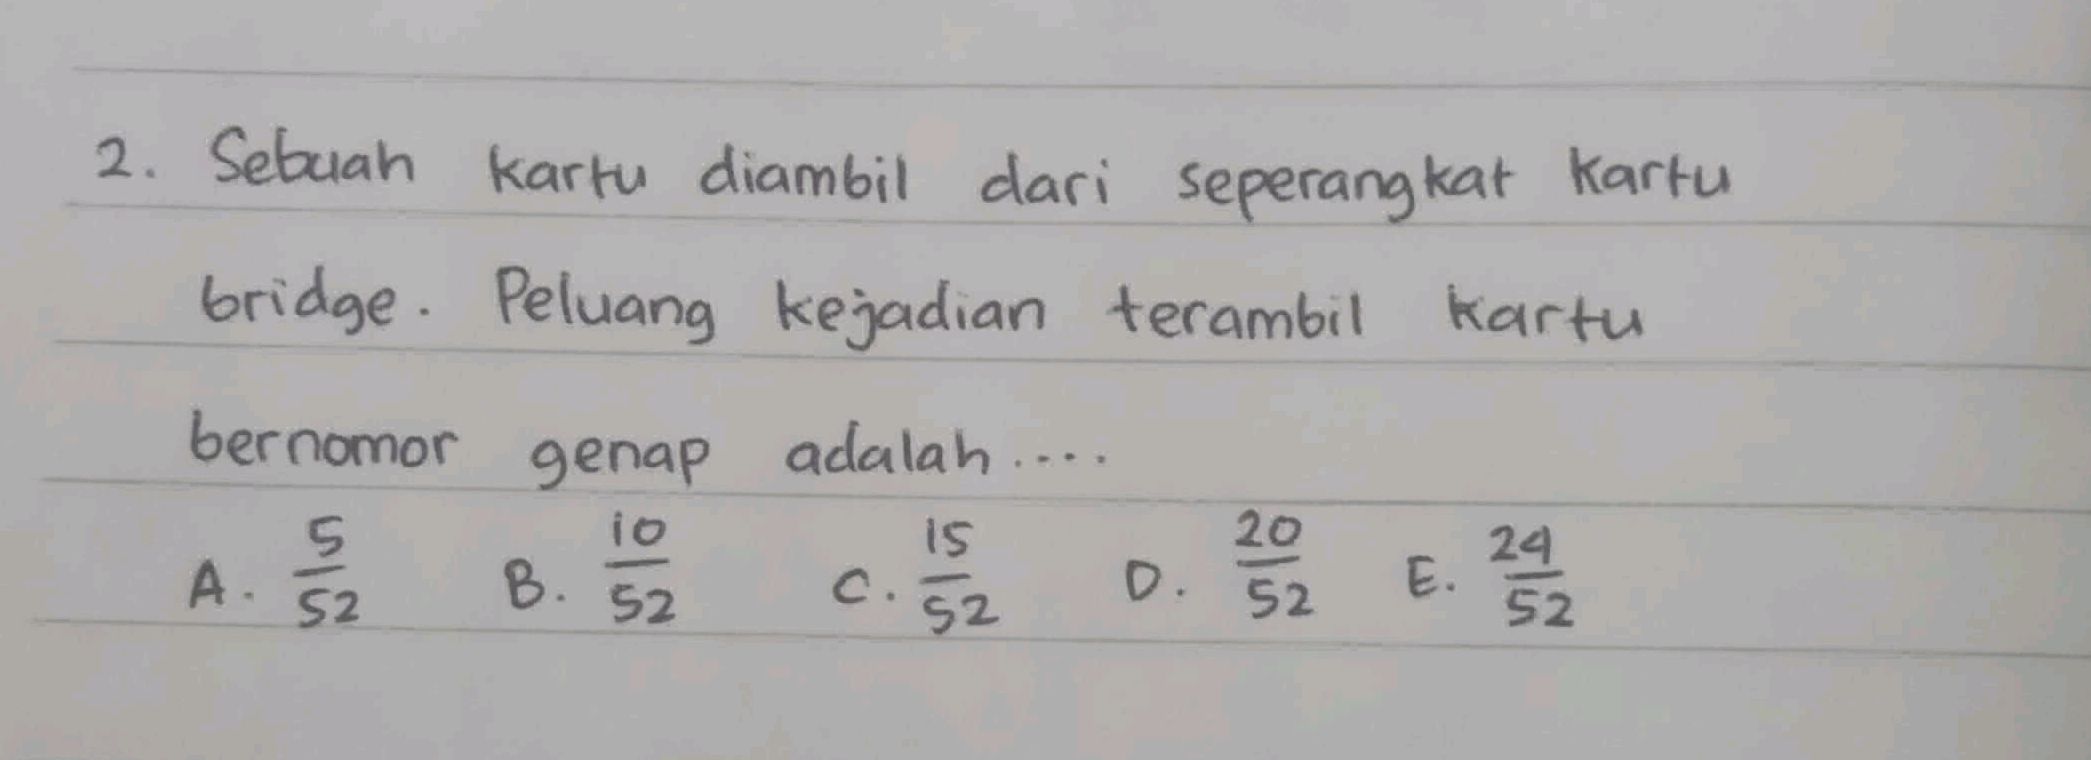 2. Sebuah kartu diambil dari seperangkat kartu
bridge. Peluang kejadian terambil kartu
bernomor genap adalah....
A. 5/52 B. 10/52 C. 15/52 D. 20/52 E. 24/52